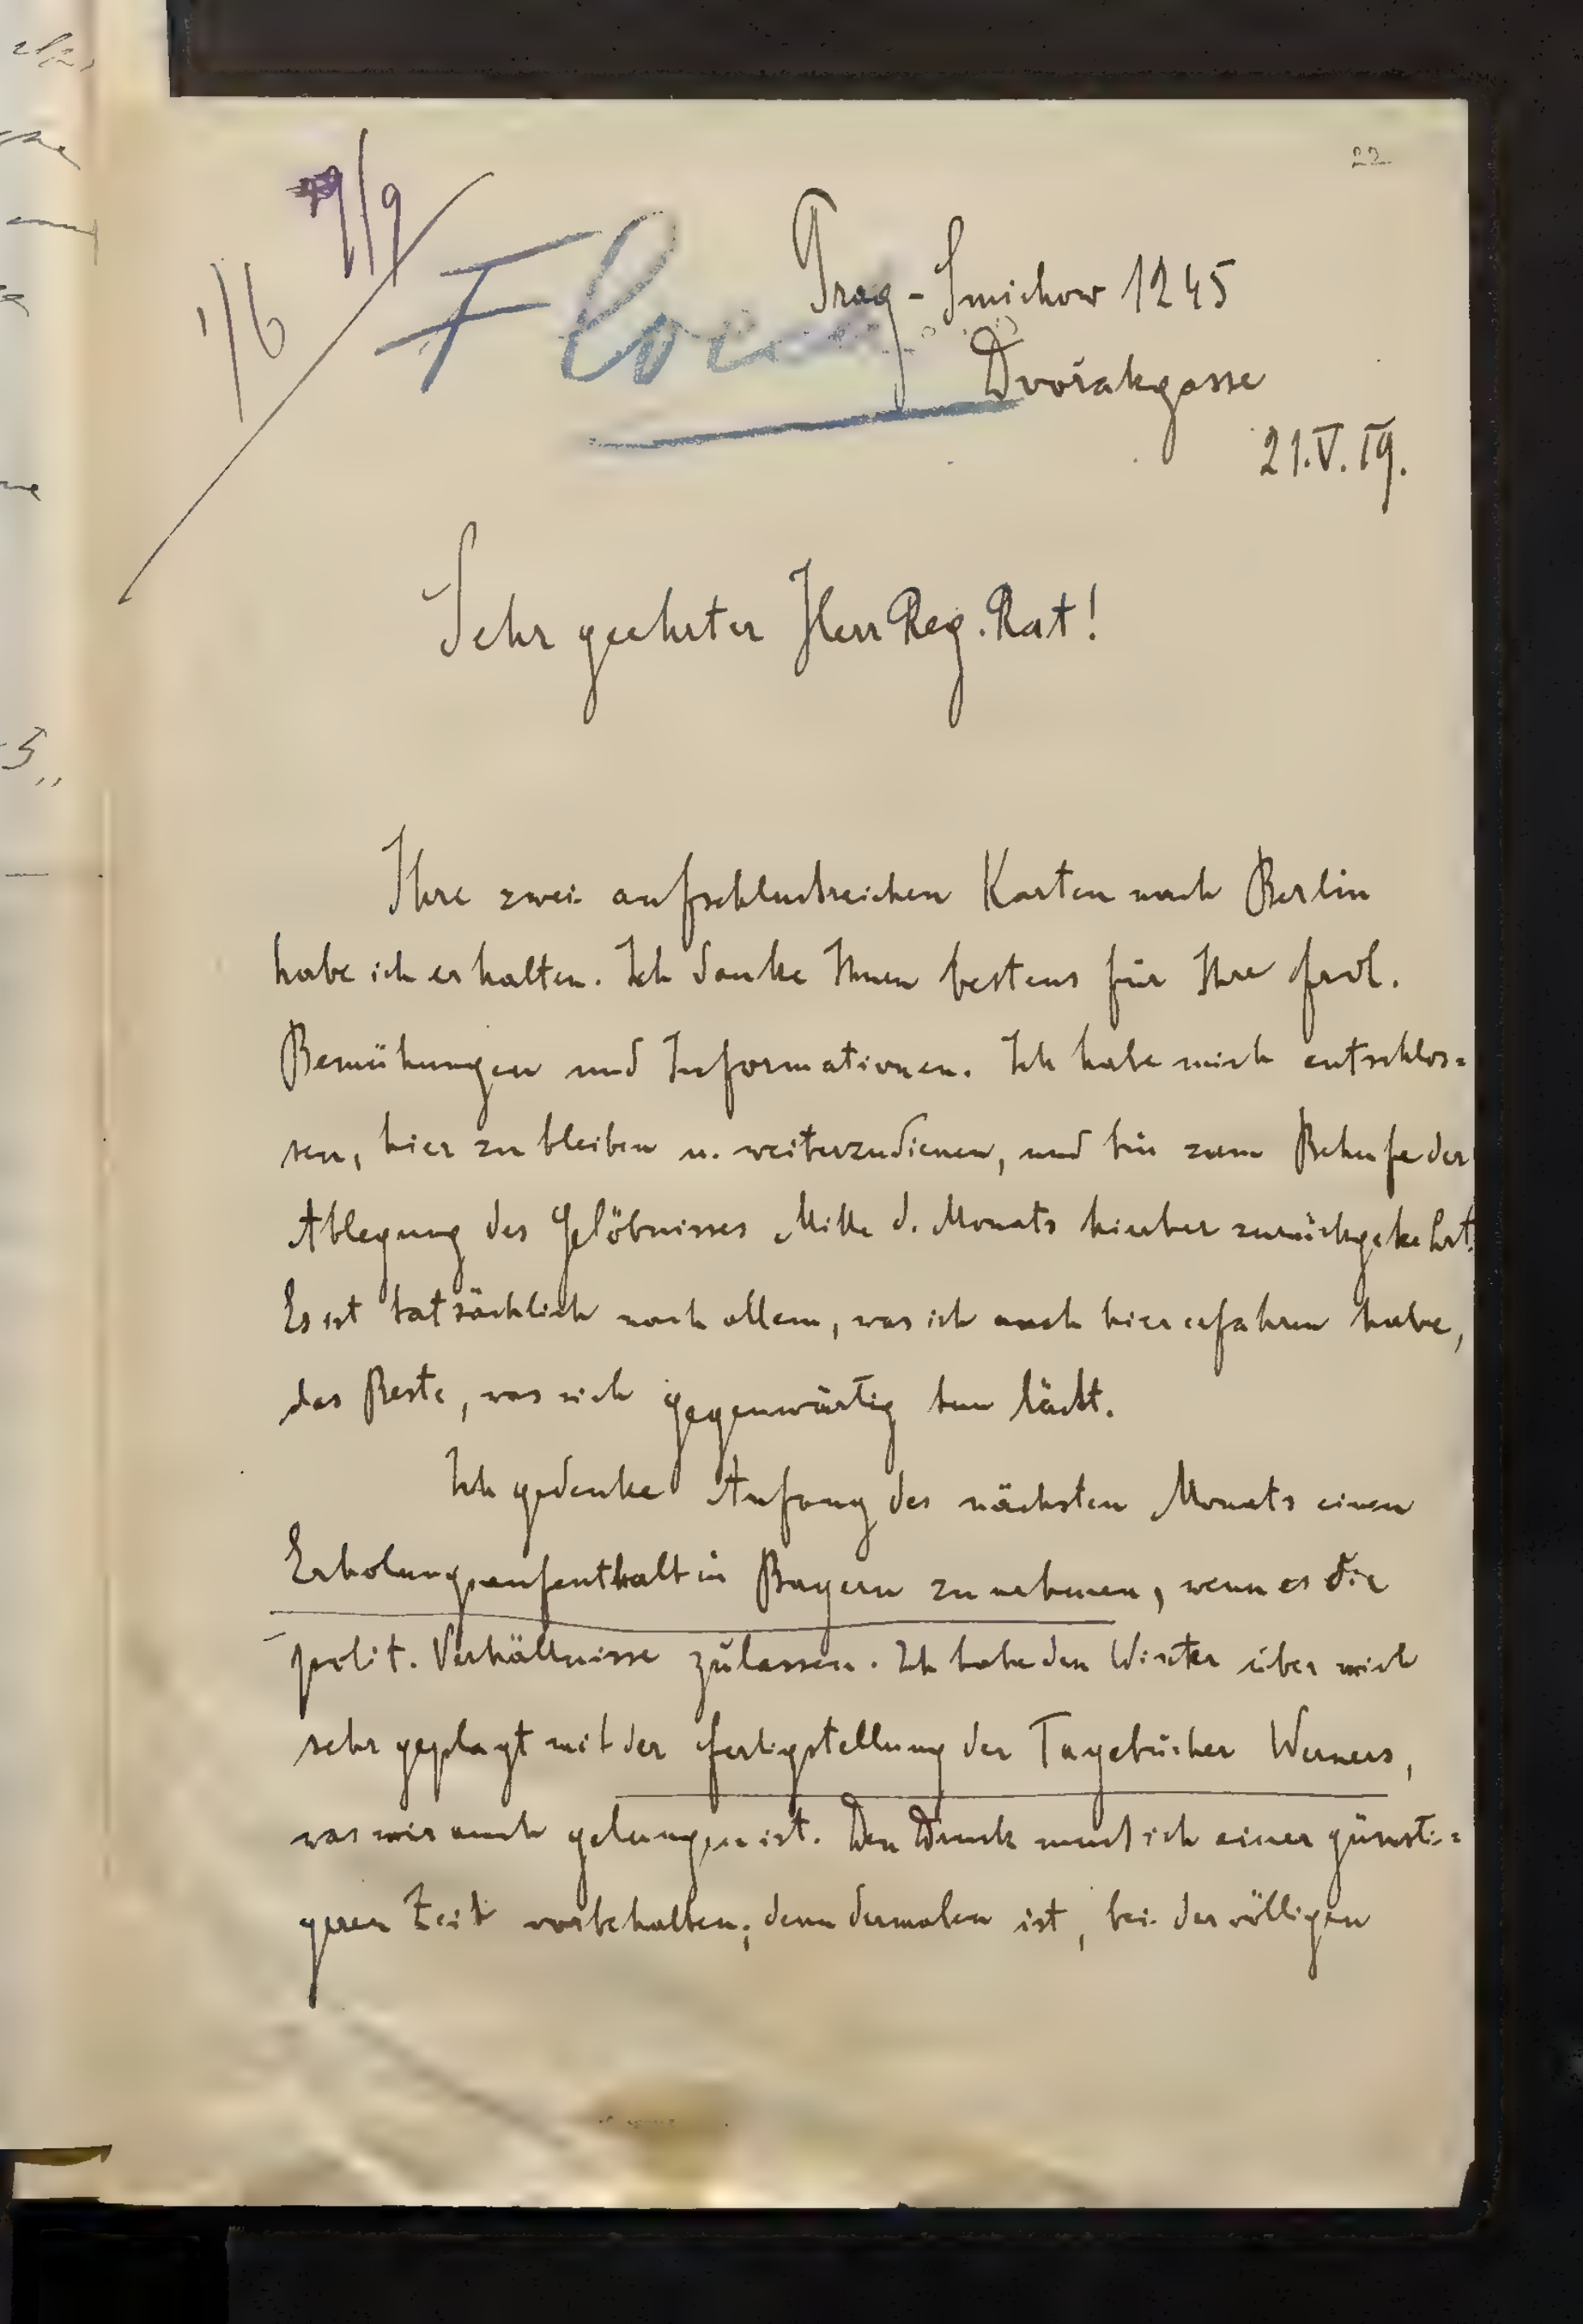 22
9/9
1/6
Prag-Smichow 1245
Dvořakgasse
21.V.19.
Sehr geehrter Herr Reg. Rat!
Ihre zwei aufschlußreichen Karten nach Berlin
habe ich erhalten. Ich danke Ihnen bestens für Ihre frdl.
Bemühungen und Informationen. Ich habe mich entschlos=
sen, hier zu bleiben u. weiterzudienen, und bin zum Behufe der
Ablegung des Gelöbnisses Mitte d. Monats hieher zurückgekehrt.
Es ist tatsächlich nach allem, was ich auch hier erfahren habe,
das Beste, was sich gegenwärtig tun läßt.
Ich gedenke Anfang des nächsten Monats einen
Erholungsaufenthalt in Bayern zu nehmen, wenn es die
polit. Verhältnisse zulassen. Ich habe den Winter über mich
sehr geplagt mit der Fertigstellung der Tagebücher Werners,
was mir auch gelungen ist. Den Druck muß ich einer günsti=
geren Zeit vorbehalten; denn dermalen ist, bei der völligen